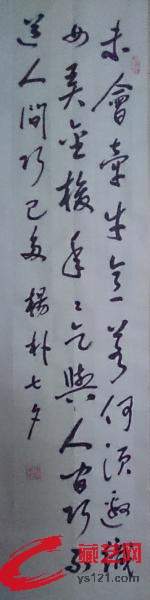 未會牽牛意若何須邀織
女弄金梭年〻乞與人間巧不
道人間巧已多楊朴七夕
藏艺网
ys121.com